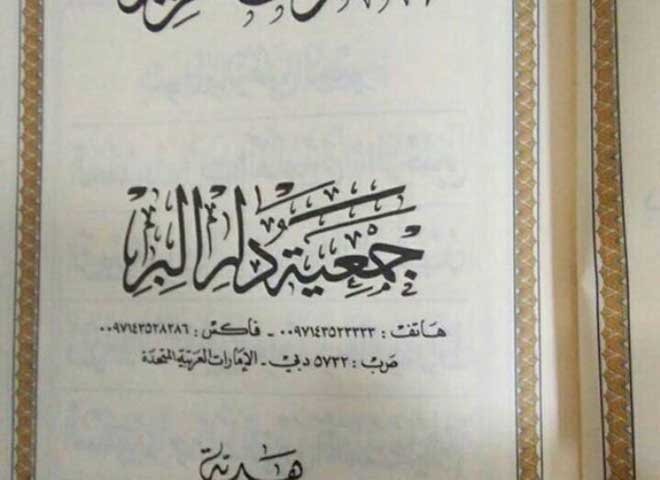 جمعية دار البر
هاتف : ٠٠٩٧١٤٣٥٢٣٣٣٣ - فاكس : ٠٠٩٧١٤٣٥٢٨٢٨٦
ص.ب : ٥٧٣٢ دبي - الإمارات العربية المتحدة
هدية